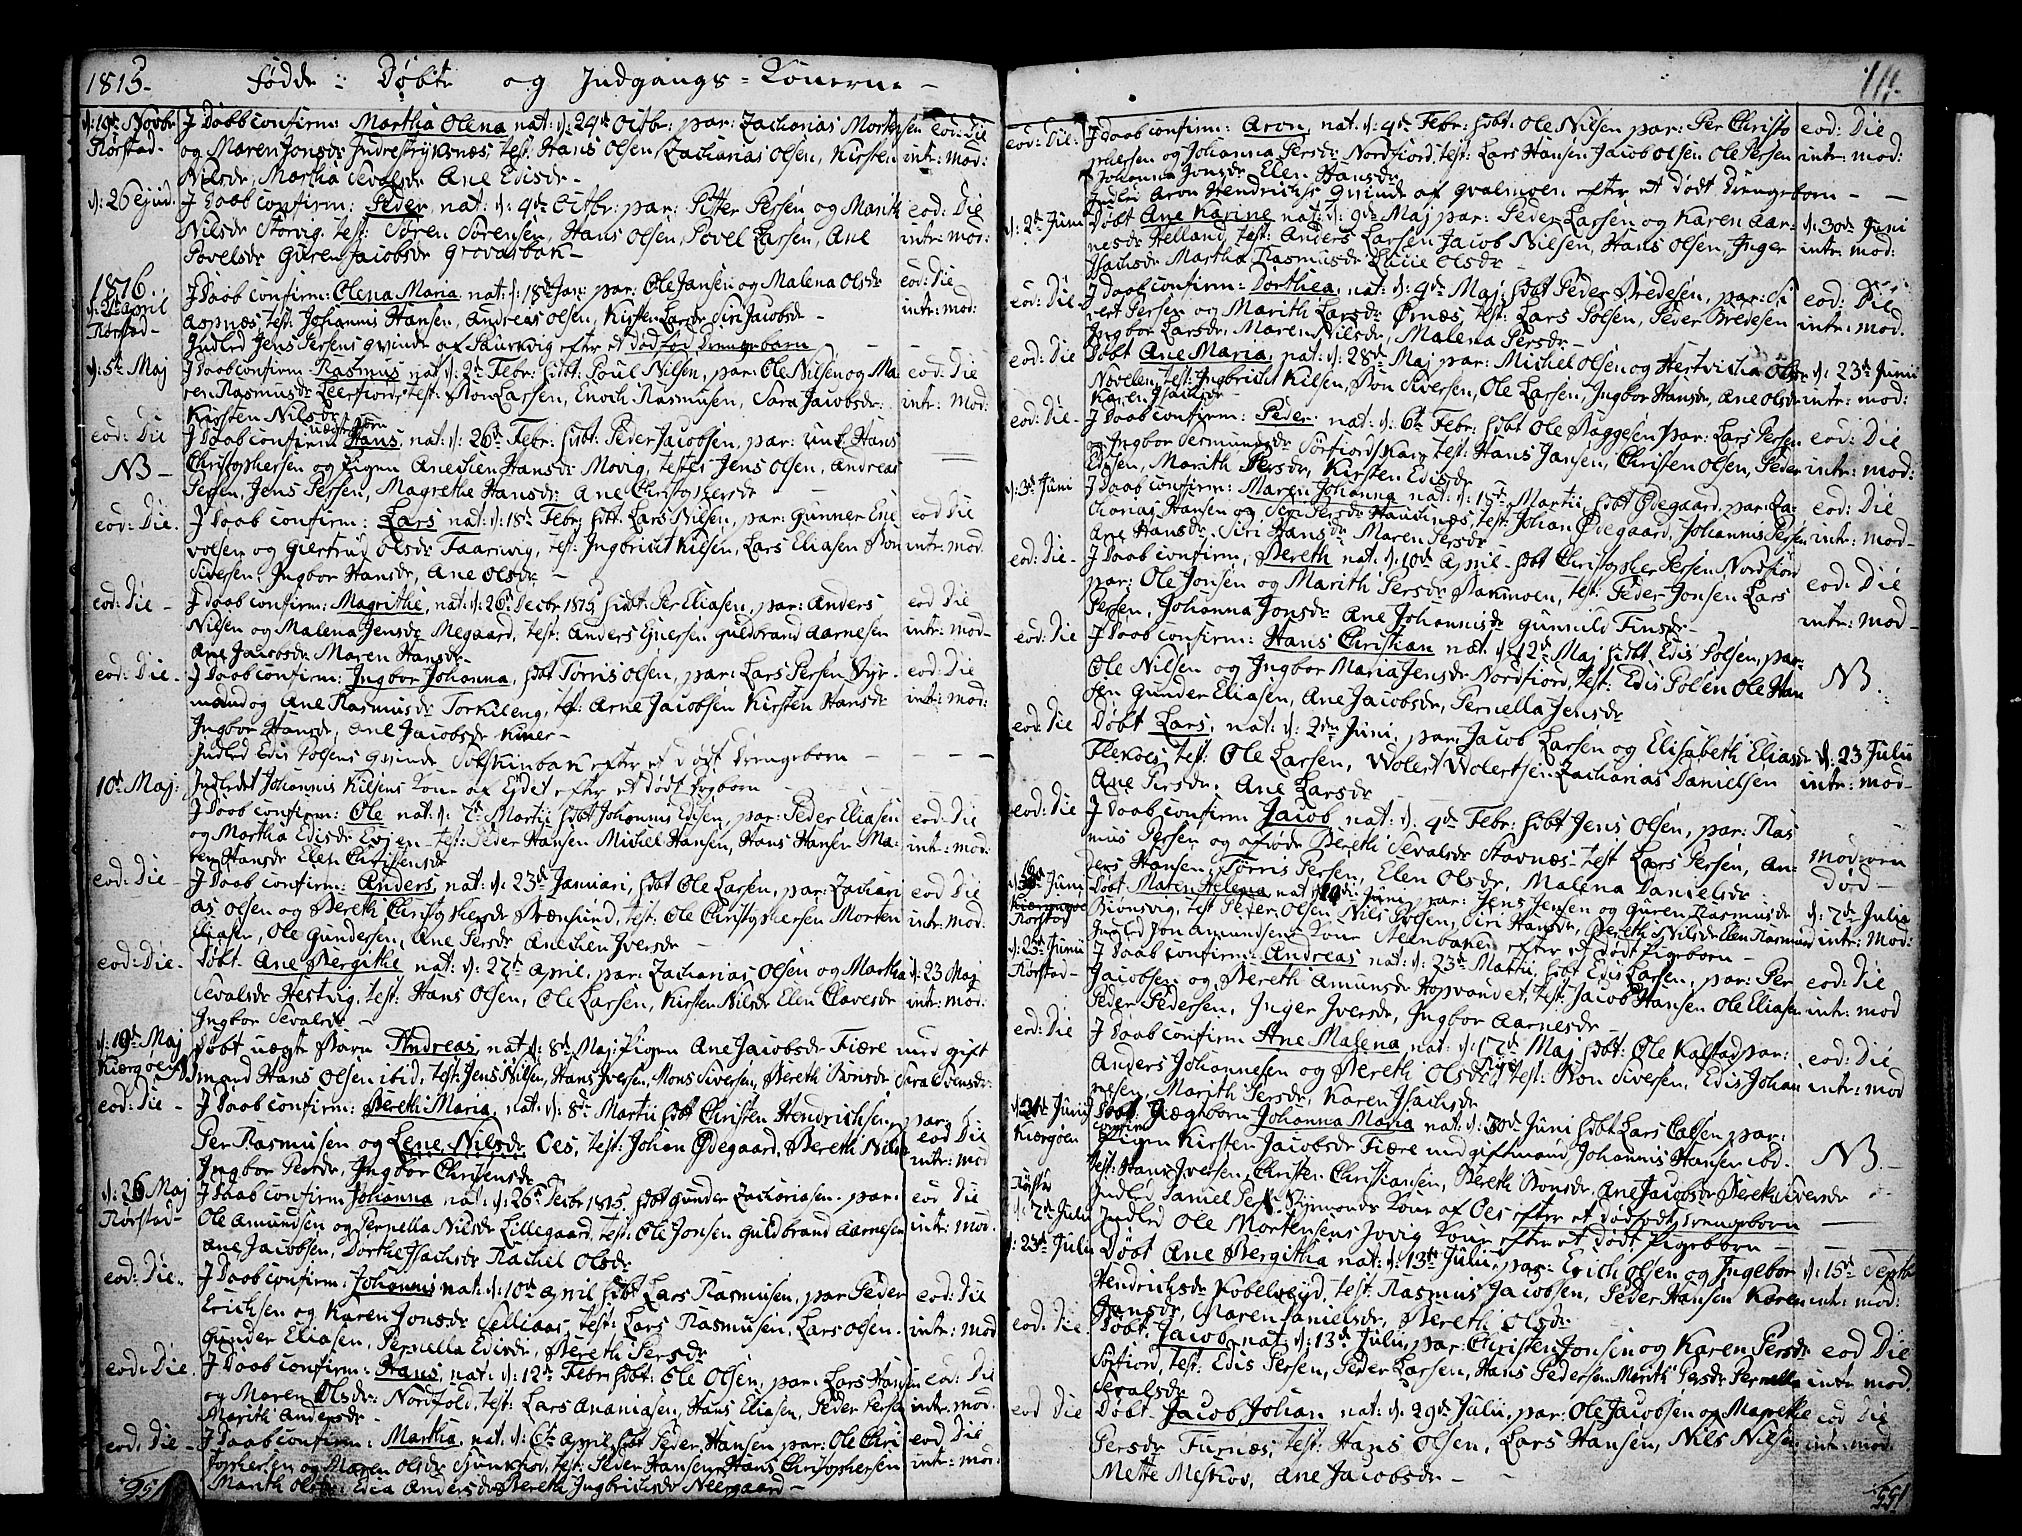 1815. Fødde : Døbte og Indgangs = Konerne -
d: 19de Novbr J Daab confirm: Martha Olena nat: d: 24de Octbr: par: Zacharias Morten
Rørstad- og Maren Jonsdr Indrestrÿksnæs, test: Hans Olsen, Zacharias Olsen, Kirsten eod: Die intr: mod:
Nilsdr, Martha Sevalsdr Ane Edisdr -
d: 26 ejusd. J Daab confirm: Peder nat: d: 4de Octbr: par: Pitter Persen og Marith eod: Die
Nilsdr Storvig, test: Søren Sørensen, Hans Olsen, Povel Larsen, Ane intr: mod:
Povelsdr Guren Jacobsdr Grovasbak -
1816
d: 2de April J Daab confirm: Olena Maria nat: d: 18de Jan: par: Ole Jansen og Malena Olsdr eod: Die
Rørstad- Aspnæs, test: Johannis Hansen, Andreas Olsen, Kirsten Larsdr Siri Jacobsdr - intr: mod:
Indled Jens Persens qvinde af Saurvig efter et dødfød Drengebarn - - -
d: 5te Maj J Daab confirm Rasmus nat d: 2de Febr: hdbt: Poul Nilsen, par: Ole Nilsen og Ma- eod: Die
ren Rasmusdr Leerfiord, test: Bon Larsen, Enoch Rasmusen, Sara Jacobsdr: intr: Mod:
Kirsten Nilsdr
eod: Die J Daab confirm uægte børn Hans nat: d: 26de Febr: hdbt: Peder Jacobsen, par: unk. Hans
NB - Christophersen og Pigen Anechen Hansdr Movig, testes Jens Olsen, Andreas
Persen, Jens Persen, Magrethe Hansdr: Ane Christophersdr
eod: Die. J Daab confirm: Lars nat: d: 18de Febr: hdbt: Lars Nilsen, par: Gunner Ene eod Die
volsen og Giertrud Olsdr Taarnvig, test: Ingbricht Kilsen, Lars Eliasen Bon intr: mod.
Siversen, Ingbor Hansdr, Ane Olsdr -
eod: Die - J Daab confirm: Magrithe, nat: d: 26de Decbr 1815 hdbt: Per Eliasen, par: Anders eod Die
Nilsen og Malena Jensdr Megaard, test: Anders Ejnersen Guldbrand Aarnesen intr: mod-
Ane Jacobsdr Maren Hansdr-
eod: Die - J Daab confirm: Ingbor Johanna, hdbt Tørris Olsen, par: Lars Persen Styr- eod: Die
mand og Ane Rasmusdr Torkileng, test: Arne Jacobsen Kirsten Hansdr intr: mod:
Ingbor Hansdr, Ane Jacobsdr
Indled Edis Polsens qvinde efter et dødt drengebarn - - -
10de Maj: Indledet Johannis Kilsens Kone af Ejdet efter et dødt Pigebarn -
J Daab confirm: Ole nat: d: 7de Martii hdbt Johannis Edisen, par: Peder Eliasen eod: Die
og Martha Edisdr Evjen - test: Peder Hansen Michel Hansen, Hans Hansen Ma- intr: mod:
ren Hansdr Elen Christensdr
eod: Die - J Daab confirm: Anders, nat: d: 23de Januari, hdbt Ole Larsen, par: Zachari eod Die
as Olsen og Bereth Christophersdr Brænsund, test: Ole Christophersen Morten intr: mod:
Eliasen, Ole Gundersen, Ane Persdr Anechen Iversdr -
eod: Die. Døbt Ane Bergithe nat: d: 27de April, par: Zacharias Olsen og Martha d: 23 Maj
Sevalsdr Hestvig, test: Hans Olsen, Ole Larsen, Kirsten Nilsdr Elen Clavesdr intr: mod:
Ingbor Sevalsdr -
d: 19de Maj Døbt uægte Barn Andreas nat d: 8de Maj: Pigen Ane Jacobsdr Fiære med gift
Kiærgøen mand Hans Olsen ibid, test: Jens Nilsen, Hans Iversen, Mons Siversen, Bereth Bonsdr Sara Evensdr:
eod: Die - J Daab confirm: Bereth Maria, nat: d: 8de Martii hdbt Christen Hendrichsen, par:
Per Rasmusen og Lene Nilsdr Oes, test: Johan Ødegaard, Bereth Nilsdr eod Die
Ingbor Persdr, Ingbor Christensdr intr: mod
d: 26 Maj J Daab confirm Johanna nat: d: 26de Decbr 1815 hdbt Gunder Zachariasen, par: eod Die
Rørstad- Ole Amundsen og Pernella Nilsdr Lillegaard, test: Ole Jonsen Guldbrand Aarnesen intr: mod.
Ane Jacobsen, Dorthe Isachsdr Rachel Olsdr
eod: Die. J Daab confirm: Johannis nat: d: 10de April hdbt Lars Rasmusen, par Peder eod: Die
Erichsen og Karen Jonsdr Selliaas, test: Lars Rasmusen, Lars Olsen. intr: mod
Gunder Eliasen, Pernella Edisdr, Bereth Persdr
eod: Die. J Daab confirm: Hans, nat: d: 12te Febr: hdbt: Ole Olsen, par: Lars Hansen eod: Die
og Maren Olsdr: Nordfold, test: Lars Ananiasen, Hans Eliasen, Peder Persen intr: mod.
Marith Andersdr -
eod: Die - J Daab confirm: Martha, nat: d: 6te April hdbt Peder Hansen par: Ole Chri eod Die
stophersen og Maren Olsdr test: Peder Hansen, Hans Christophersen intr: mod:
Marith Olsdr: Edea Andersdr Bereth Ingbrichtsdr Neergaard -
111.
eod: Die: J Daab confirm: Aron, nat: d: 4de Febr: hdbt: Ole Nilsen par: Per Christo eod: Die
phersen og Johanna Persdr Nordfiord, test: Lars Hansen Jacob Olsen Ole Persen intr: mod:
Johanna Jonsdr Elen Hansdr
Indled Aron Hendrichs: qvinde af Qvalmoen efter et dødt Drengebarn - -
d: 2de Juni Døbt Ane Karine nat: d: 9de Maj par: Peder Larsen og Karen Aar- d: 30de Juni
nesdr Helland, test: Anders Larsen Jacob Nilsen, Hans Olsen, Inger intr: mod:
Isachsdr Martha Rasmusdr Lucie Olsdr -
eod: Die - J Daab confirm: Dorthea, nat: d: 4de Maj: hdbt Peder Bredesen, par: Si eod: Die
vert Persen og Marith Larsdr Ørnæs, test: Lars Polsen, Peder Bredesen intr: mod:
Ingbor Larsdr, Maren Nilsdr, Malena Persdr -
eod: Die Døbt Ane Maria, nat: d: 28de Maj par: Michel Olsen og Hestvicha Olsdr d: 23de Junii
Novelen, test: Ingbricht Kilsen, Bon Siversen, Ole Larsen, Ingbor Hansdr, Ane Olsdr intr: mod:
Karen Isachsdr
eod: Die - J Daab confirm: Peder nat: d: 6te Febr: hdbt Ole Baggesen par: Lars Persen eod: Die
og Ingbor Sermundsdr Sørfiordskar, test: Hans Jansen, Christen Olsen, Peder intr: mod:
Edisen, Marith Persdr, Kirsten Edisdr
d: 3de Juni J Daab confirm: Maren Johanna nat: d: 15de Martii hdbt Ødegaard, par: Za- eod: Die
charias Hansen og Siri Persdr test: Johan Ødegaard, Johannis Persen intr: mod-
Ane Hansdr. Siri Hansdr Maren Persdr
eod: Die - J Daab confirm, Bereth nat: d: 10de April - hdbt Christopher Persen Nordfiord
par: Ole Jonsen og Marith Persdr Bakmoen, test: Peder Jonsen Lars eod: Die
Persen, Johanna Jonsdr Ane Johannisdr Gunnild Finsdr - intr: mod -
eod: Die J Daab confirm: Hans Christian nat d: 12de Maj hdbt Edis Polsen, par:
Ole Nilsen og Ingbor Maria Jensdr Nordfiord, test: Edis Polsen Ole Han NB.
sen Gunder Eliasen, Ane Jacobsdr, Pernella Jensdr
eod: Die Døbt Lars, nat: d: 2den Juni, par: Jacob Larsen og Elisabeth Eliasdr d: 23 Julii
Flekoes, test: Ole Larsen, Wolert Wolertsen Zacharias Danielsen intr: mod-
Ane Persdr, Ane Larsdr
eod: Die J Daab confirm Jacob nat: d: 4de Febr: hdbt Jens Olsen, par: Ras
mus Persen og afdøde Bereth Sevalsdr Stavnæs - test Lars Persen, An- Moderen
ders Hansen, Tørris Persen, Elen Olsdr, Malena Danielsdr død -
d: 16de Juni Døbt Maren Helena nat d: 10de Juni, par: Jens Jensen og Guren Rasmusdr d: 7de Julia
Rørstad Biønsvig, test Peter Olsen Nils Polsen, Siri Hansdr, Bereth Nilsdr Elen Rasmusd intr: Mod:
Indled Jon Amundsens Kone Steenbaken efter et dødt Pigebarn -
d: 23de Junii J Daab confirm: Andreas nat: d: 23de Martii, hdbt Edis Larsen, par: Per
Rørstad- Jacobsen og Bereth Amundsdr Hopvandet, test: Jacob Hansen Ole Eliasen eod: Die
Peder Pedersen, Inger Iversdr, Ingbor Aarnesdr - intr: mod
eod: Die J Daab confirm Ane Malena nat: d: 17de Maj hdbt: Ole Kalstad par: eod: Die
Anders Johannesen og Bereth Olsdr test: Bon Siversen, Edis Johan intr: mod
nesen, Marith Persdr, Karen Isachsdr
d: 24de Junij Døbt: Uægtebarn Johanna Maria nat: d: 30de Juni hdbt Lars Carlsen par:
Kiærgøen Pigen Kirsten Jacobsdr Fiære med giftmand Johannis Hansen ibd. NB. -
test: Hans Iversen, Christen Christiansen, Bereth Bonsdr. Ane Jacobsdr Bereth Siversdr
Indled Daniel Kone af Oes efter et dødfødt drengebarn -
d: 7de Julii Indled Ole Mortensens Jvvig Kone efter et dødt Pigebarn -
d: 23de Julii Døbt Ane Bergitha nat: d: 13de Julii, par: Erich Olsen og Ingebor d: 15de Septb
Hendrichsdr Kobelvejd, test: Rasmus Jacobsen, Peder Hansen Karen intr: mod:
Hansdr, Maren Danielsdr, Bereth Olsdr
eod: Die. Døbt Jacob, nat: d: 13de Julii, par: Christen Jonsen og Karen Persdr eod Die
Sørfiord, test: Edis Persen, Peder Larsen, Hans Pedersen Marith Persdr Pernella intr: mod.
Sevalsdr
eod Die Døbt Jacob Johan nat: d. 29de Julii, par: Ole Jacobsen og Magrethe eod Die
Persdr Furnæs, test: Hans Olsen, Lars Hansen, Nils Nilsen: intr: mod:
Mette Ane Jacobsdr -